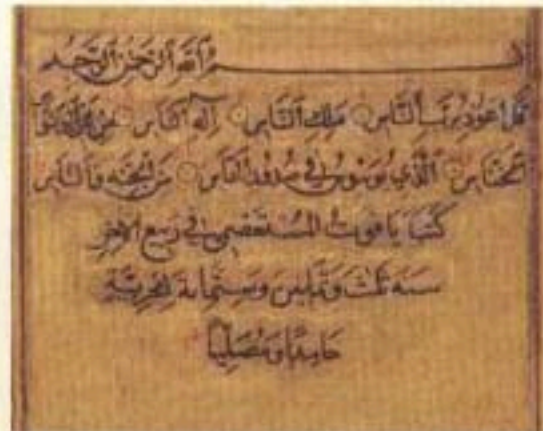 بسم الله الرحمن الرحيم
قل اعوذ برب الناس ملك الناس اله الناس من شر الوسواس
الخناس الذي يوسوس في صدور الناس من الجنة والناس
كتبه ياقوت المستعصمي في ربيع الاخر
سنة ثلث وثمانين وستماية هجرية
حامدا ومصليا